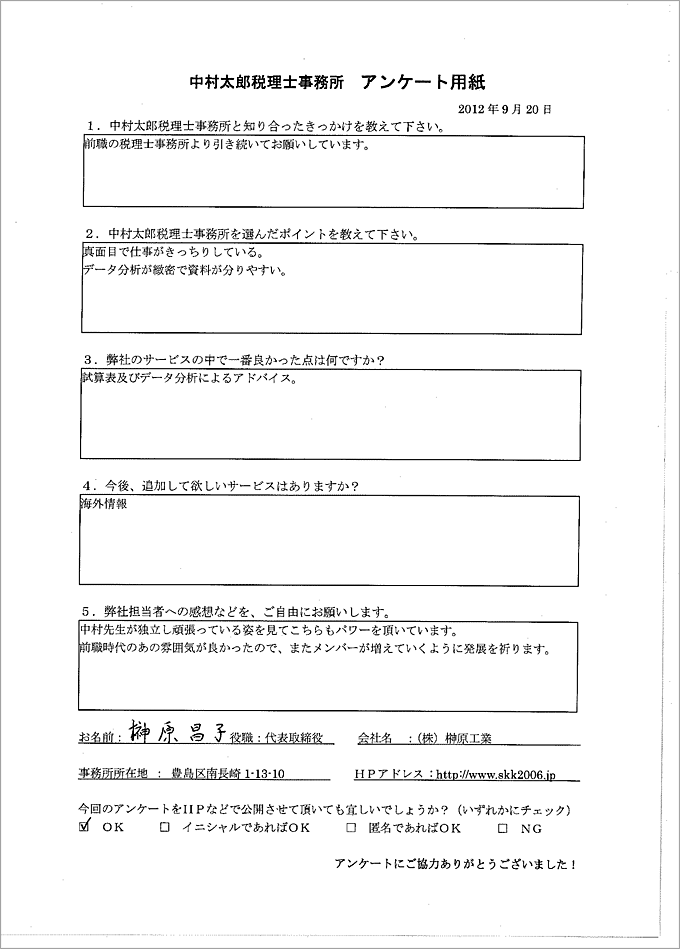 中村太郎税理士事務所　アンケート用紙
2012年9月20日
１．中村太郎税理士事務所と知り合ったきっかけを教えて下さい。
前職の税理士事務所より引き続いてお願いしています。
２．中村太郎税理士事務所を選んだポイントを教えて下さい。
真面目で仕事がきっちりしている。
データ分析が緻密で資料が分りやすい。
３．弊社のサービスの中で一番良かった点は何ですか？
試算表及びデータ分析によるアドバイス。
４．今後、追加して欲しいサービスはありますか？
海外情報
５．弊社担当者への感想などを、ご自由にお願いします。
中村先生が独立し頑張っている姿を見てこちらもパワーを頂いています。
前職時代のあの雰囲気が良かったので、またメンバーが増えていくように発展を祈ります。
お名前：榊原昌子 役職：代表取締役　会社名　：（株）榊原工業
事務所所在地　：　豊島区南長崎 1-13-10　ＨＰアドレス：http://www.skk2006.jp
今回のアンケートをＨＰなどで公開させて頂いても宜しいでしょうか？（いずれかにチェック）
☑　ＯＫ　□　イニシャルであればＯＫ　□　匿名であればＯＫ　□　ＮＧ
アンケートにご協力ありがとうございました！